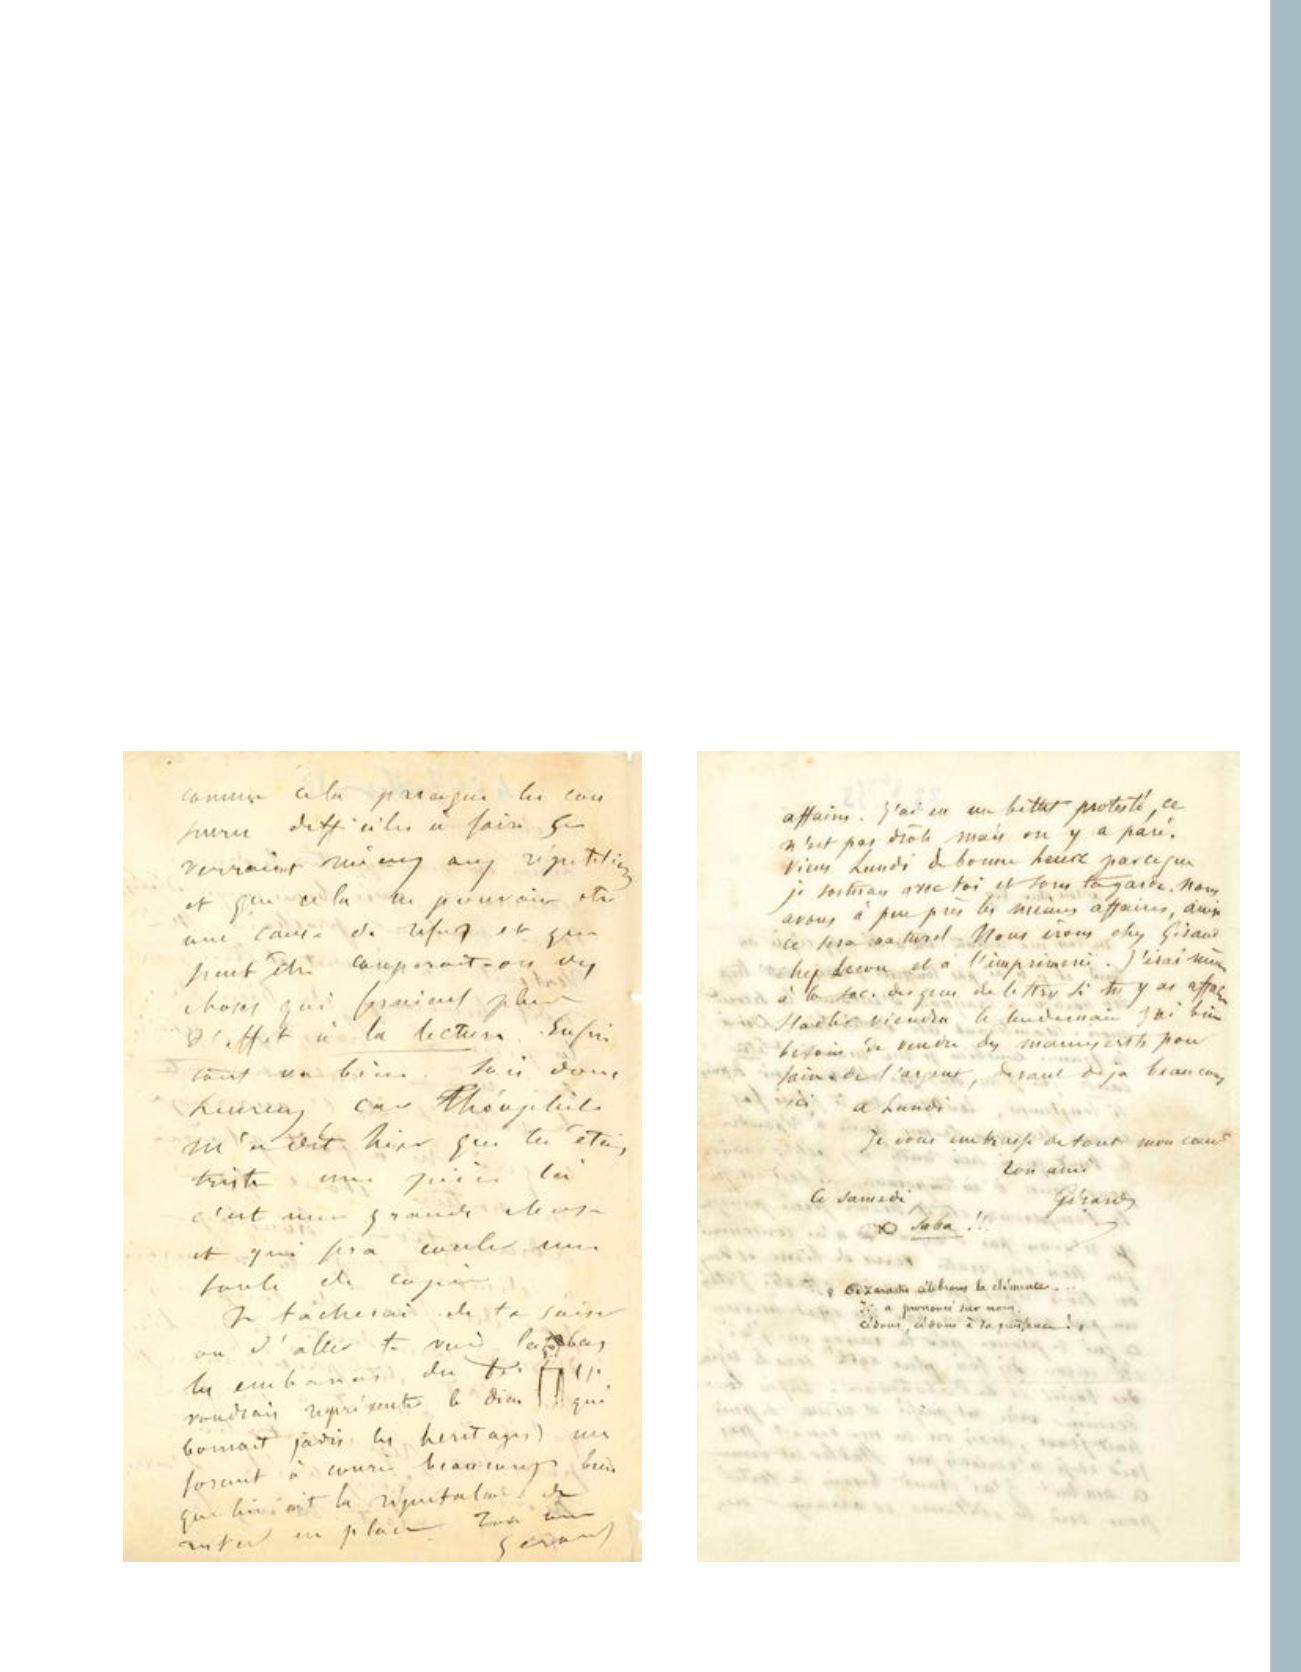 comme cela parceque les cou
pures difficiles à faire se
verraient mieux aux répétitions
et que cela ne pouvait être
une cause de refus et que
peut être couperait-on des
choses qui feraient plus
d'effet à la lecture. Enfin
tout va bien. Sois donc
heureux car Théophile
m'a dit hier que tu étais
triste une pièce là
c'est une grande chose
et qui fera couler une
foule de copie
Je tâcherai de te saisir
ou d'aller te voir là bas
les embarras du
voudrais représenter le dieu qui
bornait jadis les heritages) me
forçant à courir beaucoup bien
que lui ait la réputation de
rester en place Ton ami
Gérard
affaires. J'ai eu un billet protesté, ce
n'est pas drôle mais on y a paré.
Viens Lundi de bonne heure parceque
je sortirai avec toi et sous ta garde. Nous
avons à peu près les mêmes affaires, ainsi
ce sera naturel Nous irons chez Giraud
chez Lecou et à l'imprimerie. J'irai même
à la soc. des gens de lettres si tu y as affaire
Stadler viendra le lendemain J'ai bien
besoin de vendre des manuscrits pour
faire de l'argent, devant déja beaucoup
ici a Lundi
Je vous embrasse de tout mon cœur
Ton ami
Ce samedi Gérard
Saba !!.
célébrons la clémence...
Il a prononcé sur nous.
Cédons, cédons à sa puissance !